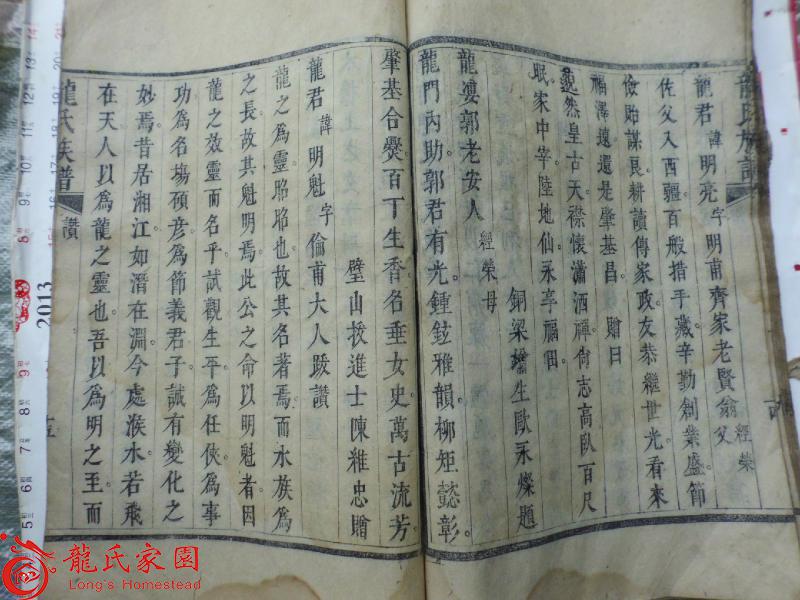 龍氏族譜
龍君諱明亮字明甫齊家老賢翁父經榮
佐父入西疆百般措手藏辛勤創業盛節
儉貽謀良耕讀傳家政友恭繼世光看來
福澤遠還是肇基昌 贈曰
然皇古天襟懷瀟洒禪尚志高臥百尺
眠家中宰陸地仙永享福田
銅梁增生歐永燦題
龍婆郭老安人經榮母
龍門內助郭君有光鍾鉉雅韻柳矩懿彰
肇基合爨百丁生香名垂女史萬古流芳
璧山拔進士陳稚忠贈
龍君諱明魁字倫甫大人跋讚
龍之為靈昭昭也故其名著焉而水族為
之長故其魁明焉此公之命以明魁者因
龍之效靈而名乎試觀生平為任俠為事
功為名場碩彥為節義君子誠有變化之
妙焉昔居湘江如潛在淵今處濮水若飛
在天人以為龍之靈也吾以為明之至而
龍氏族譜 讚 十五
2013
龍氏家園
Long's Homestead